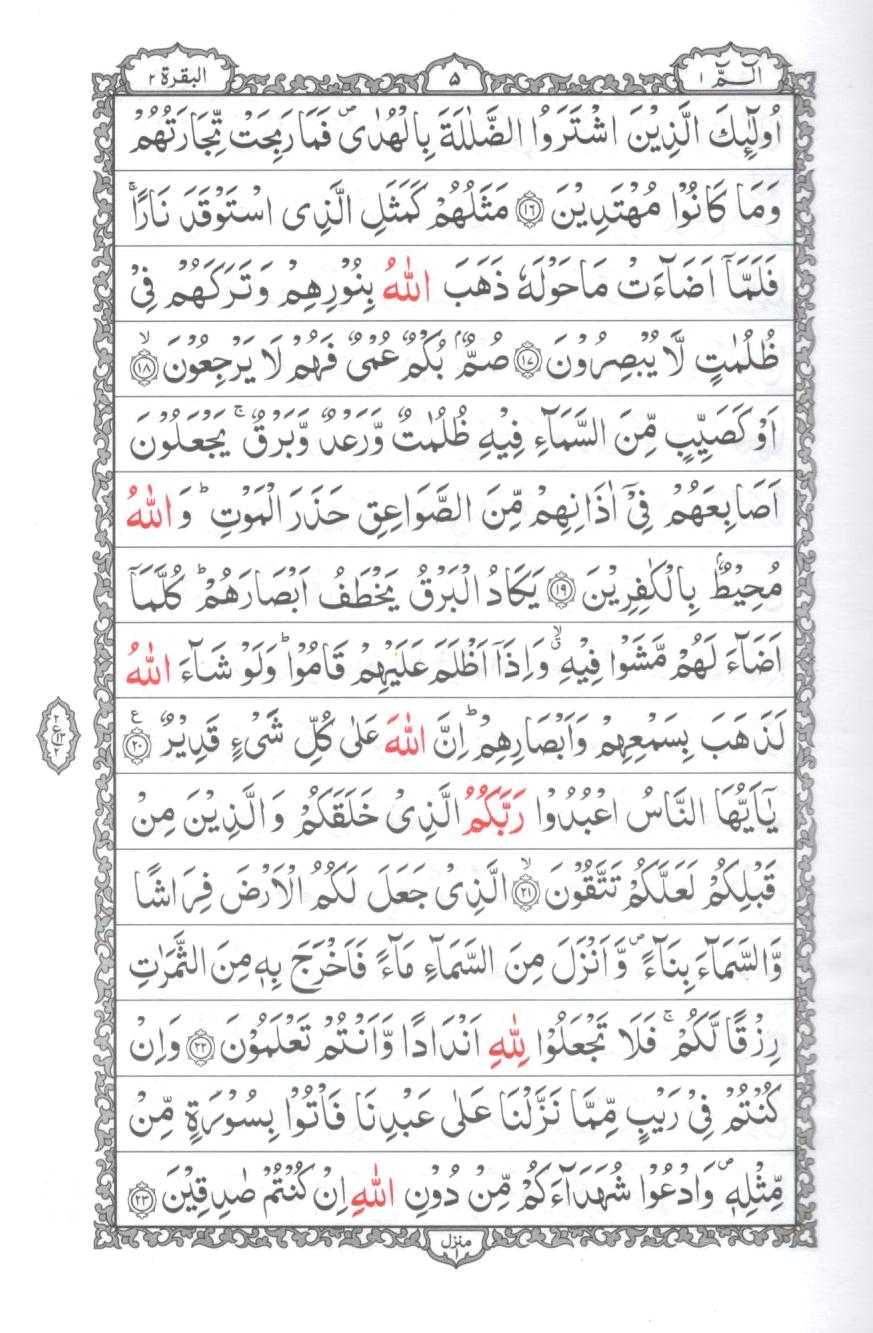 الٓمّٓ ١
۵
البقرة ٢
اُولٰٓئِكَ الَّذِيْنَ اشْتَرَوُا الضَّلٰلَةَ بِالْهُدٰى ۪ فَمَا رَبِحَتْ تِّجَارَتُهُمْ
وَمَا كَانُوْا مُهْتَدِيْنَ ﴿١٦﴾ مَثَلُهُمْ كَمَثَلِ الَّذِى اسْتَوْقَدَ نَارًا ۚ
فَلَمَّآ اَضَآءَتْ مَا حَوْلَهٗ ذَهَبَ اللّٰهُ بِنُوْرِهِمْ وَتَرَكَهُمْ فِيْ
ظُلُمٰتٍ لَّا يُبْصِرُوْنَ ﴿١٧﴾ صُمٌّۢ بُكْمٌ عُمْيٌ فَهُمْ لَا يَرْجِعُوْنَ ۙ﴿١٨﴾
اَوْ كَصَيِّبٍ مِّنَ السَّمَآءِ فِيْهِ ظُلُمٰتٌ وَّرَعْدٌ وَّبَرْقٌ ۚ يَجْعَلُوْنَ
اَصَابِعَهُمْ فِيْٓ اٰذَانِهِمْ مِّنَ الصَّوَاعِقِ حَذَرَ الْمَوْتِ ؕ وَاللّٰهُ
مُحِيْطٌۢ بِالْكٰفِرِيْنَ ﴿١٩﴾ يَكَادُ الْبَرْقُ يَخْطَفُ اَبْصَارَهُمْ ؕ كُلَّمَآ
اَضَآءَ لَهُمْ مَّشَوْا فِيْهِ ۙۗ وَاِذَآ اَظْلَمَ عَلَيْهِمْ قَامُوْا ؕ وَلَوْ شَآءَ اللّٰهُ
لَذَهَبَ بِسَمْعِهِمْ وَاَبْصَارِهِمْ ؕ اِنَّ اللّٰهَ عَلٰى كُلِّ شَىْءٍ قَدِيْرٌ ﴿٢٠﴾ ع
٢
ع ١٣
٢
يٰٓاَيُّهَا النَّاسُ اعْبُدُوْا رَبَّكُمُ الَّذِىْ خَلَقَكُمْ وَالَّذِيْنَ مِنْ
قَبْلِكُمْ لَعَلَّكُمْ تَتَّقُوْنَ ۙ﴿٢١﴾ الَّذِىْ جَعَلَ لَكُمُ الْاَرْضَ فِرَاشًا
وَّالسَّمَآءَ بِنَآءً ۪ وَّاَنْزَلَ مِنَ السَّمَآءِ مَآءً فَاَخْرَجَ بِهٖ مِنَ الثَّمَرٰتِ
رِزْقًا لَّكُمْ ۚ فَلَا تَجْعَلُوْا لِلّٰهِ اَنْدَادًا وَّاَنْتُمْ تَعْلَمُوْنَ ﴿٢٢﴾ وَاِنْ
كُنْتُمْ فِيْ رَيْبٍ مِّمَّا نَزَّلْنَا عَلٰى عَبْدِنَا فَاْتُوْا بِسُوْرَةٍ مِّنْ
مِّثْلِهٖ ۪ وَادْعُوْا شُهَدَآءَكُمْ مِّنْ دُوْنِ اللّٰهِ اِنْ كُنْتُمْ صٰدِقِيْنَ ﴿٢٣﴾
منزل
١